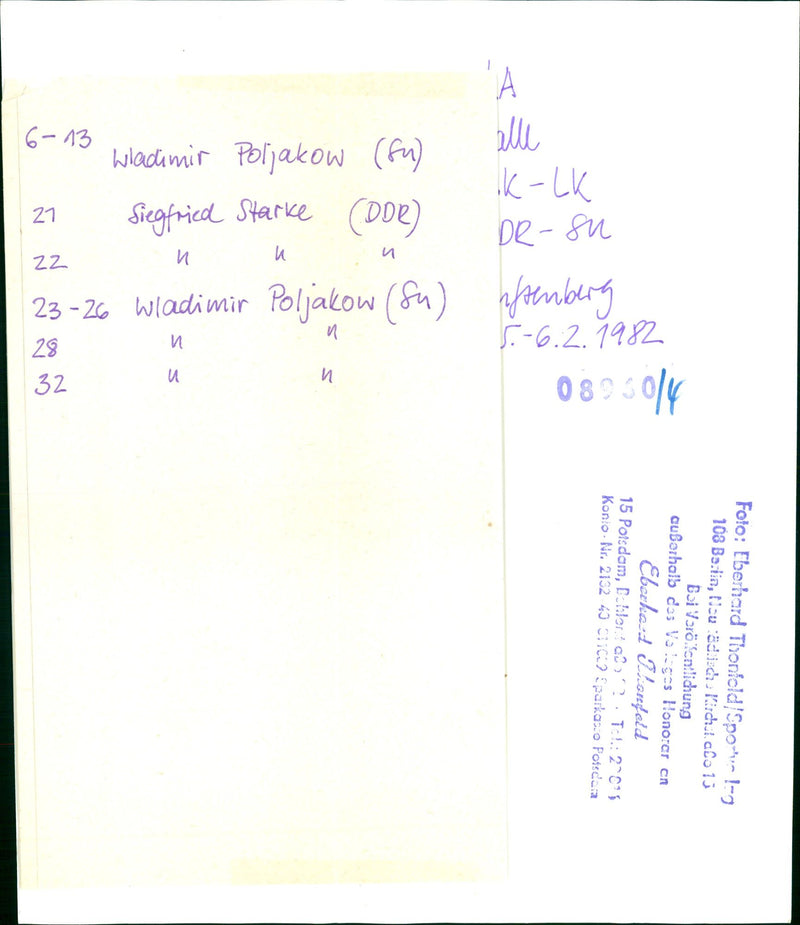 6-13 Wladimir Poljakow (SU)
21 Siegfried Starke (DDR)
22 " " "
23-26 Wladimir Poljakow (SU)
28 " "
32 " "
A
alle
K-LK
DR-SU
nftenberg
5.-6.2.1982
08930/4
Foto: Eberhard Thonfeld
108 Berlin,
Bei Veröffentlichung
außerhalb des Verlages Honorar an
Eberhard Thonfeld
15 Potsdam,
Konto-Nr. Sparkasse Potsdam